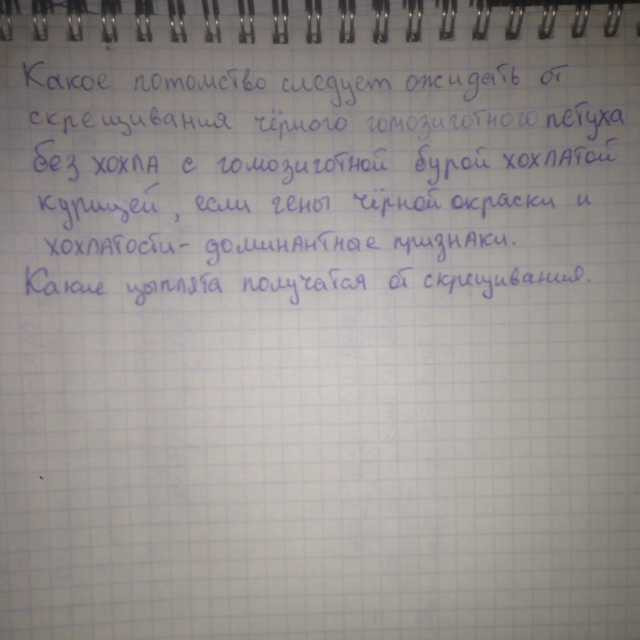 Какое потомство следует ожидать от
скрещивания чёрного гомозиготного петуха
без хохла с гомозиготной бурой хохлатой
курицей, если гены чёрной окраски и
хохлатости - доминантные признаки.
Какие цыплята получатся от скрещивания.